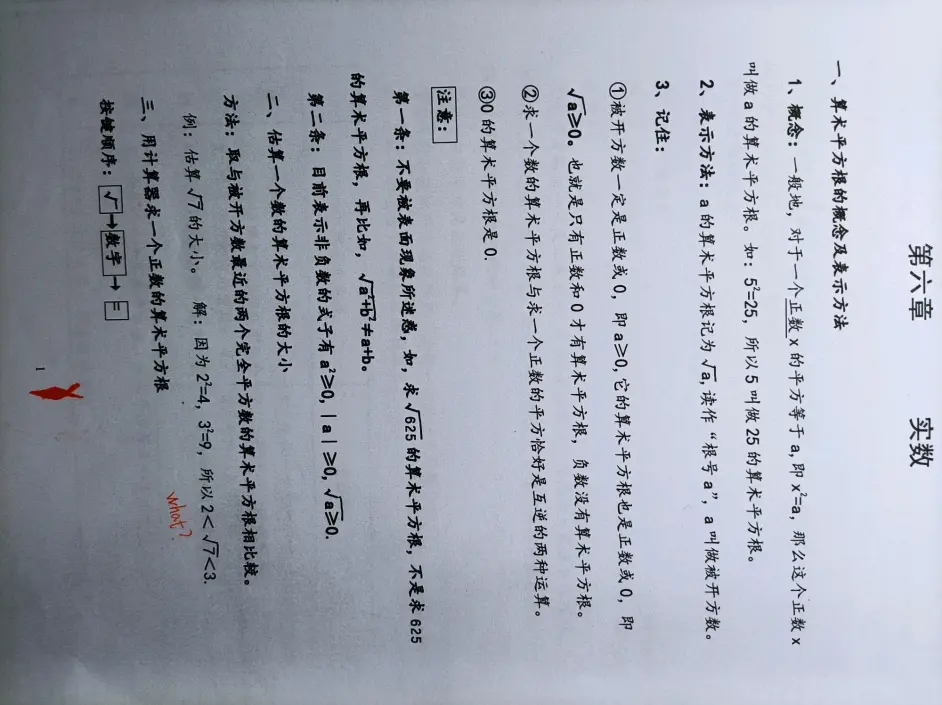 第六章 实数
一、算术平方根的概念及表示方法
1、概念：一般地，对于一个正数x的平方等于a,即x²=a，那么这个正数x
叫做a的算术平方根。如：5²=25，所以5叫做25的算术平方根。
2、表示方法：a的算术平方根记为√a,读作“根号a”，a叫做被开方数。
3、记住：
①被开方数一定是正数或0，即a≥0,它的算术平方根也是正数或0，即
√a≥0。也就是只有正数和0才有算术平方根，负数没有算术平方根。
②求一个数的算术平方根与求一个正数的平方恰好是互逆的两种运算。
③0的算术平方根是0.
注意：
第一条：不要被表面现象所迷惑，如，求√625的算术平方根，不是求625
的算术平方根，再比如，√a²+b²≠a+b。
第二条：目前表示非负数的式子有a²≥0,|a|≥0,√a≥0.
二、估算一个数的算术平方根的大小
方法：取与被开方数最近的两个完全平方数的算术平方根相比较。
例：估算√7的大小。 解：因为2²=4，3²=9，所以2<√7<3.
what?
三、用计算器求一个正数的算术平方根
按键顺序：√→数字→=
1